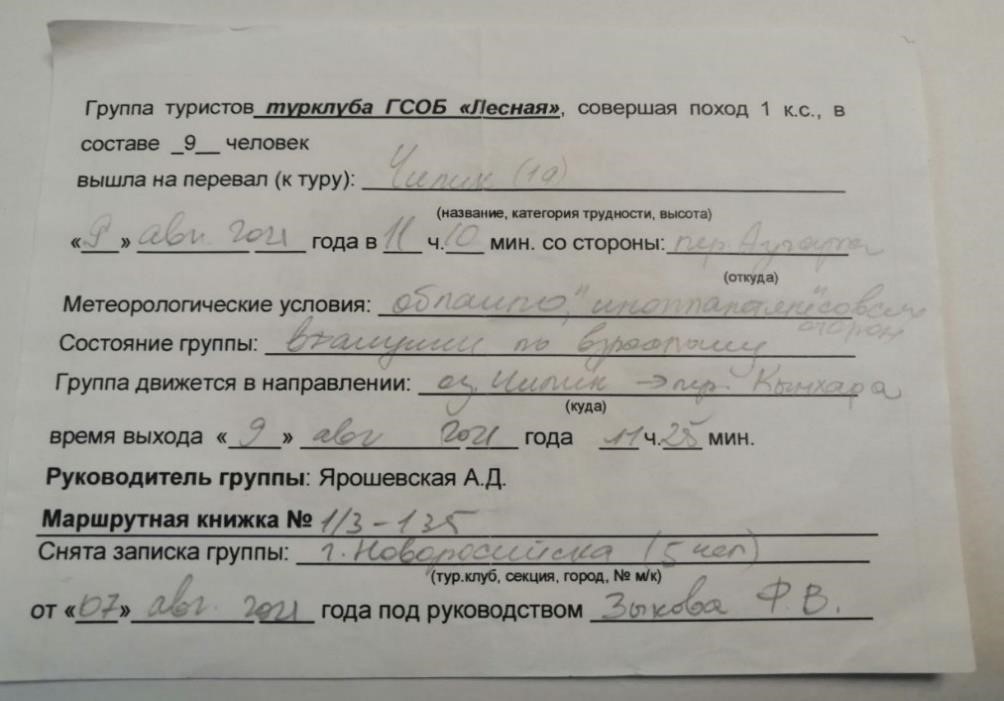 Группа туристов турклуба ГСОБ «Лесная», совершая поход 1 к.с., в
составе _9__ человек
вышла на перевал (к туру): Чипик (1а)
(название, категория трудности, высота)
«9» авг. 2021 года в 11 ч. 10 мин. со стороны: пер.
(откуда)
Метеорологические условия: облачно,
сторон
Состояние группы: по
Группа движется в направлении: оз. Чипик → пер. Кынхара
(куда)
время выхода «9» авг 2021 года 11 ч. 25 мин.
Руководитель группы: Ярошевская А.Д.
Маршрутная книжка № 1/3-135
Снята записка группы: г. Новоросийска (5 чел)
(тур.клуб, секция, город, № м/к)
от «07» авг. 2021 года под руководством Зыкова Ф.В.